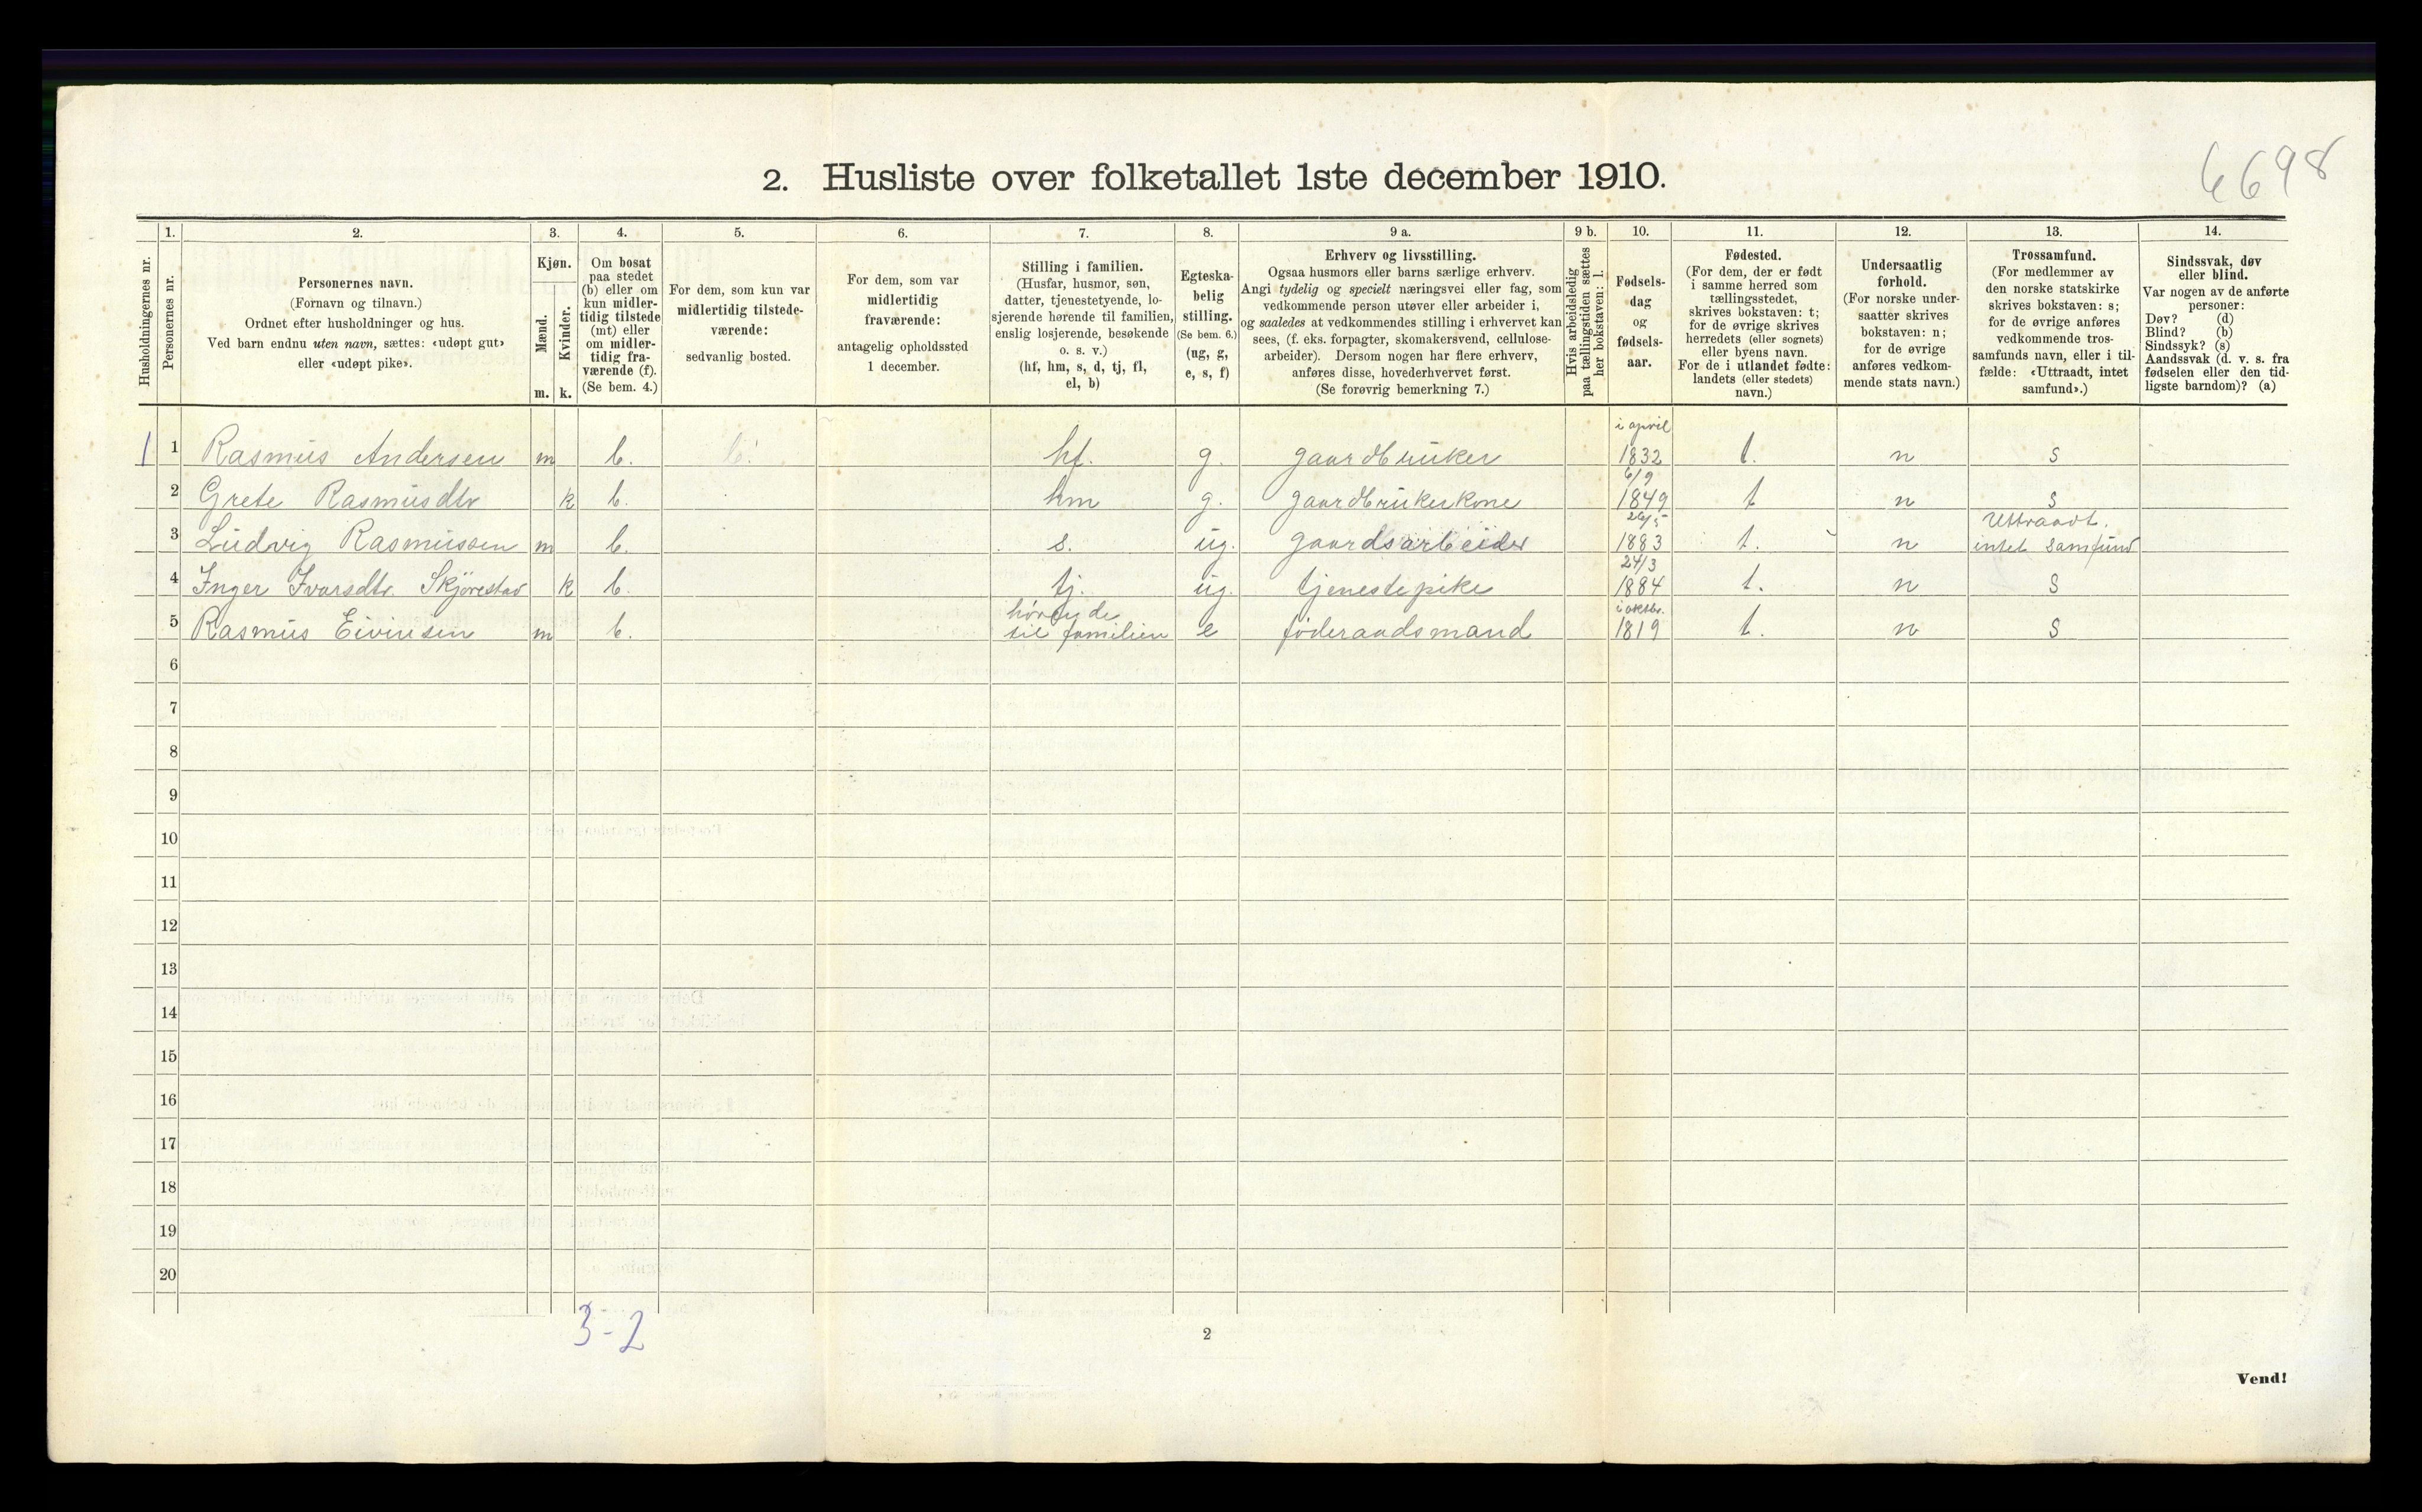 6698
2. Husliste over folketallet 1ste december 1910.
1. 2. 3. 4. 5. 6. 7. 8. 9 a. 9 b. 10. 11. 12. 13. 14.
Husholdningernes nr.
Personernes nr.
Personernes navn.
(Fornavn og tilnavn.)
Ordnet efter husholdninger og hus.
Ved barn endnu uten navn, sættes: «udøpt gut»
eller «udøpt pike».
Kjøn.
Mænd.
Kvinder.
m. k.
Om bosat
paa stedet
(b) eller om
kun midler-
tidig tilstede
(mt) eller
om midler-
tidig fra-
værende (f).
(Se bem. 4.)
For dem, som kun var
midlertidig tilstede-
værende:
sedvanlig bosted.
For dem, som var
midlertidig
fraværende:
antagelig opholdssted
1 december.
Stilling i familien.
(Husfar, husmor, søn,
datter, tjenestetyende, lo-
sjerende hørende til familien,
enslig losjerende, besøkende
o. s. v.)
(hf, hm, s, d, tj, fl,
el, b)
Egteska-
belig
stilling.
(Se bem. 6.)
(ug, g,
e, s, f)
Erhverv og livsstilling.
Ogsaa husmors eller barns særlige erhverv.
Angi tydelig og specielt næringsvei eller fag, som
vedkommende person utøver eller arbeider i,
og saaledes at vedkommendes stilling i erhvervet kan
sees, (f. eks. forpagter, skomakersvend, cellulose-
arbeider). Dersom nogen har flere erhverv,
anføres disse, hovederhvervet først.
(Se forøvrig bemerkning 7.)
Hvis arbeidsledig
paa tællingstiden sættes
her bokstaven: l.
Fødsels-
dag
og
fødsels-
aar.
Fødested.
(For dem, der er født
i samme herred som
tællingsstedet,
skrives bokstaven: t;
for de øvrige skrives
herredets (eller sognets)
eller byens navn.
For de i utlandet fødte:
landets (eller stedets)
navn.)
Undersaatlig
forhold.
(For norske under-
saatter skrives
bokstaven: n;
for de øvrige
anføres vedkom-
mende stats navn.)
Trossamfund.
(For medlemmer av
den norske statskirke
skrives bokstaven: s;
for de øvrige anføres
vedkommende tros-
samfunds navn, eller i til-
fælde: «Uttraadt, intet
samfund».)
Sindssvak, døv
eller blind.
Var nogen av de anførte
personer:
Døv? (d)
Blind? (b)
Sindssyk? (s)
Aandssvak (d. v. s. fra
fødselen eller den tid-
ligste barndom)? (a)
i april
1 1 Rasmus Andersen m b. b. hf. g. gaardbruker 1832 t. n s
6/9
2 Grete Rasmusdtr k b. hm g. gaardbrukerkone 1849 t n s
26/5 Uttraadt.
3 Ludvig Rasmussen m b. s. ug. gaardsarbeider 1883 t. n intet samfund
24/3
4 Inger Ivarsdtr. Skjørestad k b. tj. ug. tjenestepike 1884 t. n s
hørende i oktbr.
5 Rasmus Eivinsen m b. til familien e føderaadsmand 1819 t. n s
6
7
8
9
10
11
12
13
14
15
16
17
18
19
20
3-2
2
Vend!